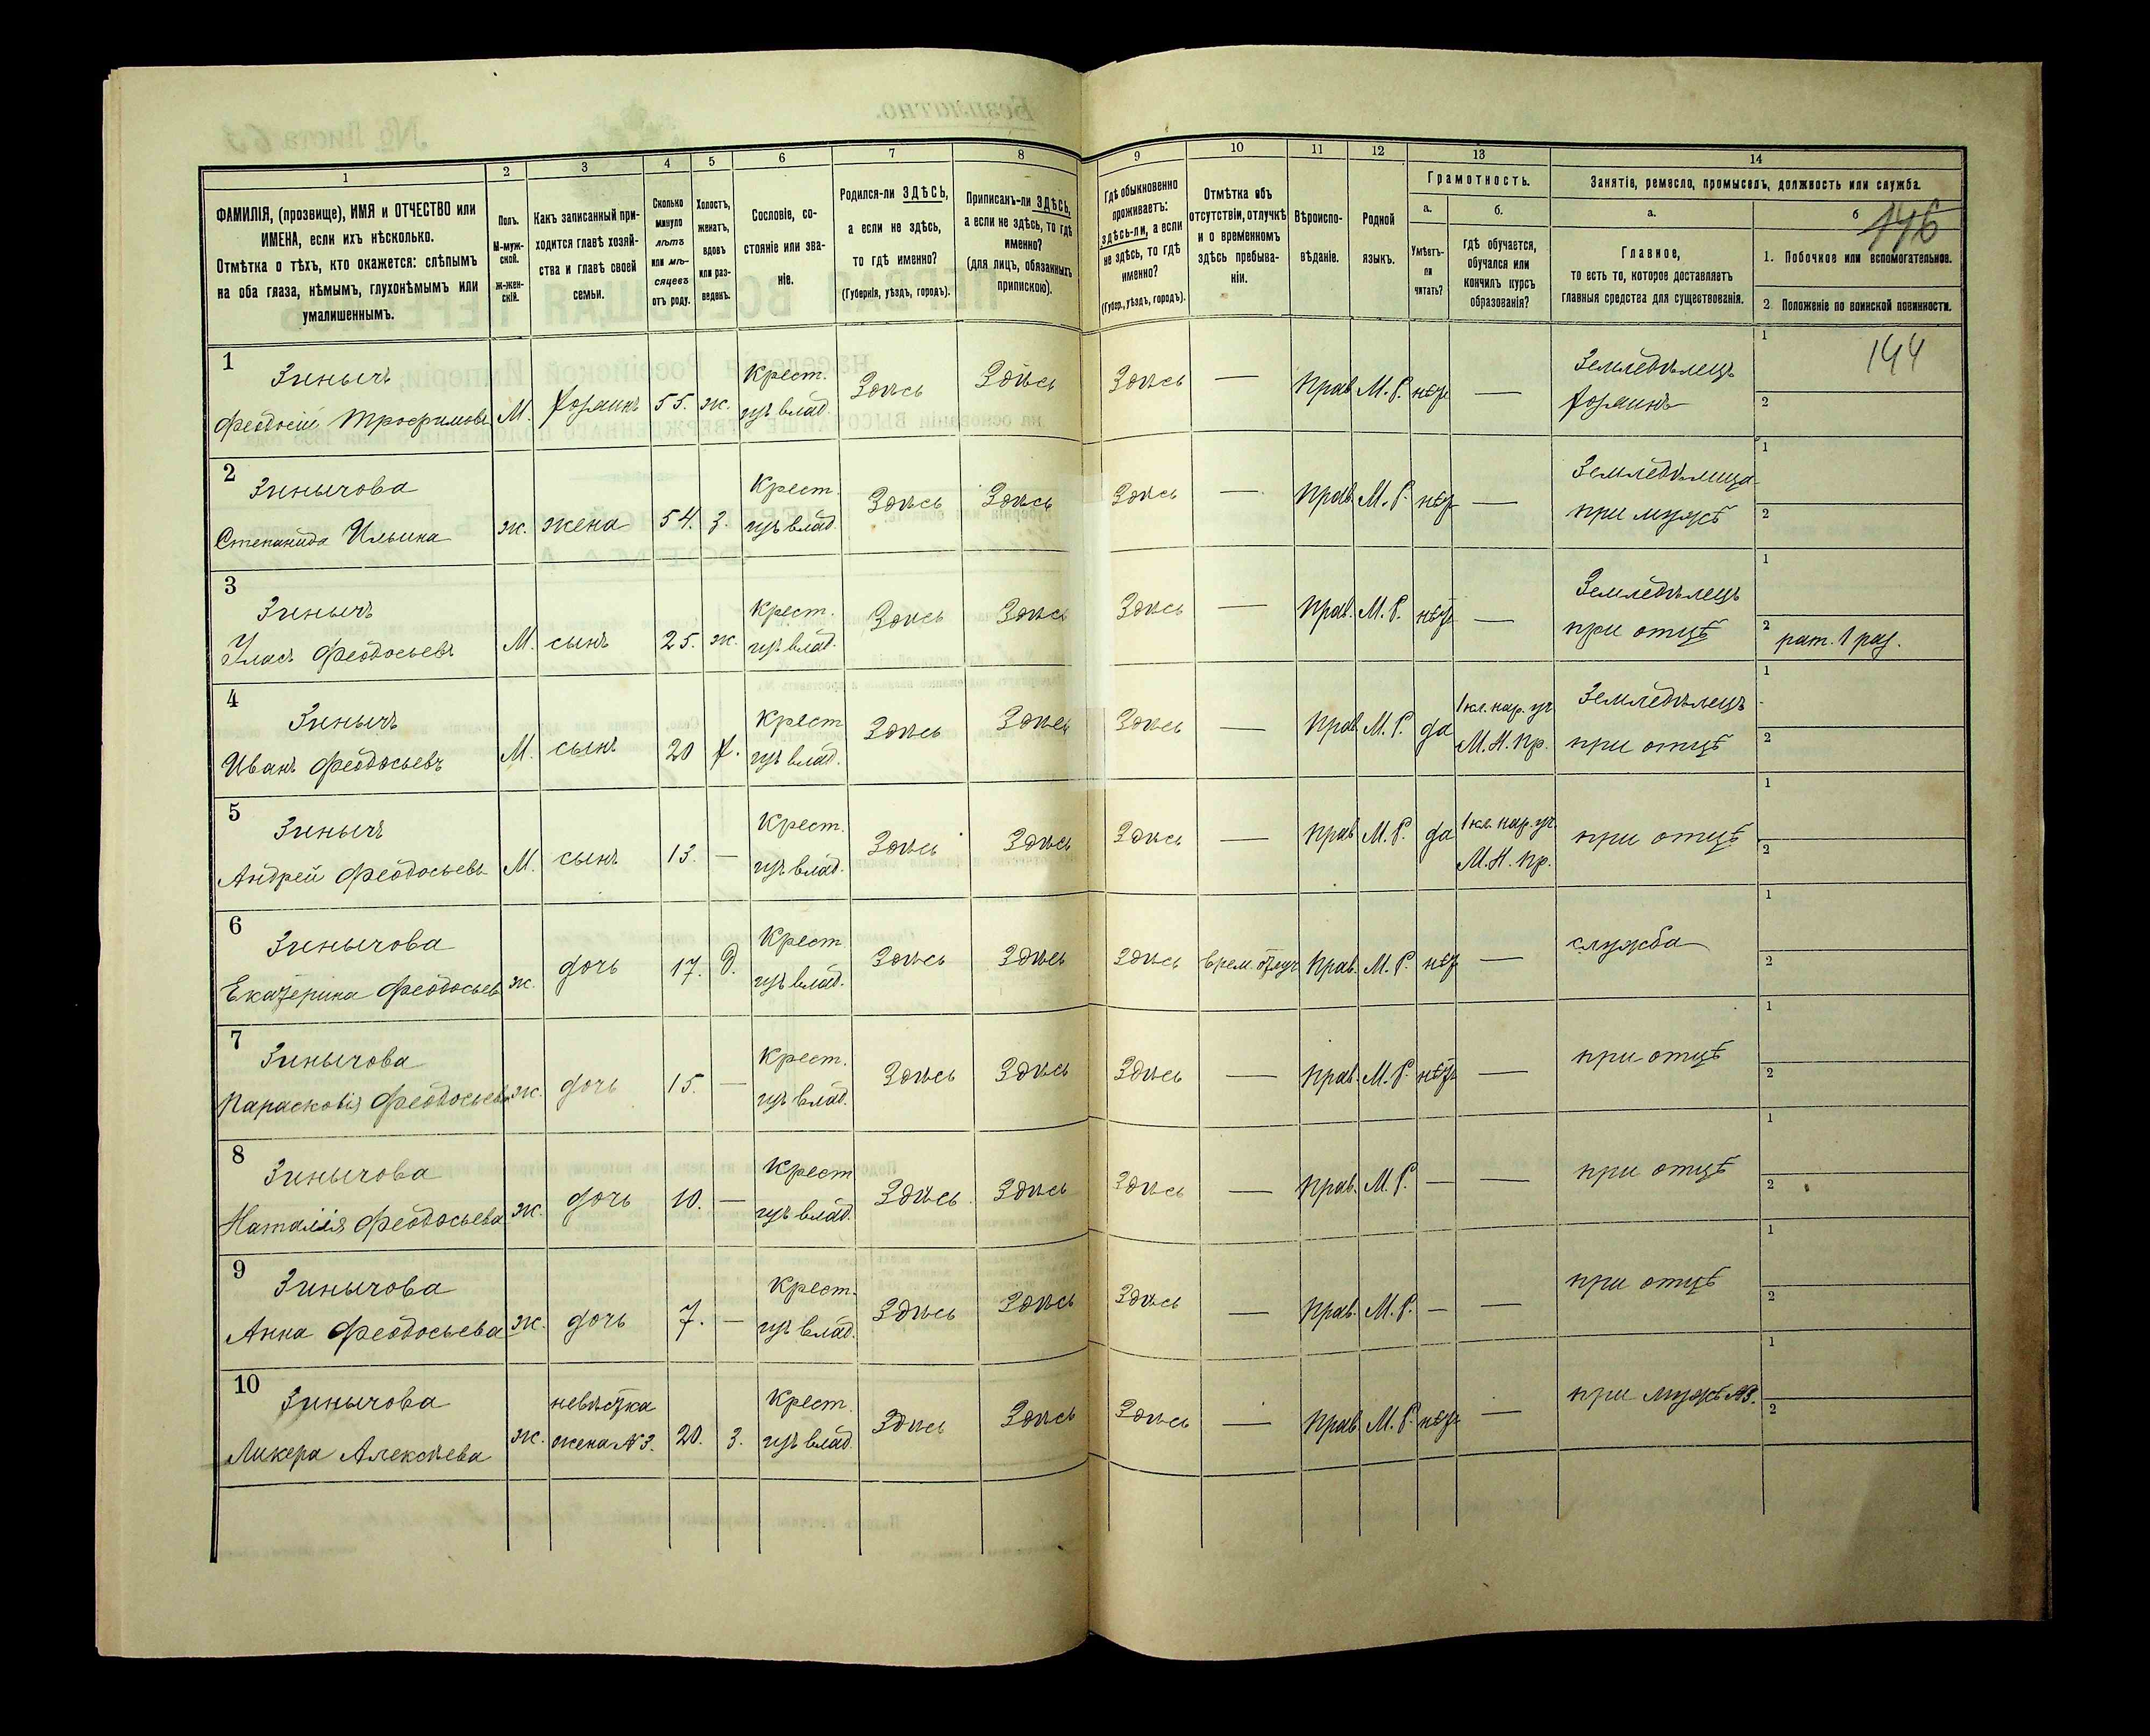 1
2
3
4
5
6
7
8
9
10
11
12
13
14
ФАМИЛІЯ, (прозвище), ИМЯ и ОТЧЕСТВО или
ИМЕНА, если ихъ нѣсколько.
Отмѣтка о тѣхъ, кто окажется: слѣпымъ
на оба глаза, нѣмымъ, глухонѣмымъ или
умалишеннымъ.
Полъ.
М-муж-
ской.
Ж-жен-
скій.
Какъ записанный при-
ходится главѣ хозяй-
ства и главѣ своей
семьи.
Сколько
минуло
лѣтъ
или мѣ-
сяцевъ
отъ роду.
Холостъ,
женатъ,
вдовъ
или раз-
веденъ.
Сословіе, со-
стояніе или зва-
ніе.
Родился-ли ЗДѢСЬ,
а если не здѣсь,
то гдѣ именно?
(Губернія, уѣздъ, городъ).
Приписанъ-ли ЗДѢСЬ,
а если не здѣсь, то гдѣ
именно?
(для лицъ, обязанныхъ
припискою).
Гдѣ обыкновенно
проживаетъ:
здѣсь-ли, а если
не здѣсь, то гдѣ
именно?
(Губер., уѣздъ, городъ).
Отмѣтка объ
отсутствіи, отлучкѣ
и о временномъ
здѣсь пребыва-
ніи.
Вѣроиспо-
вѣданіе.
Родной
языкъ.
Грамотность.
а.
Умѣетъ-
ли
читать?
б.
Гдѣ обучается,
обучался или
кончилъ курсъ
образованія?
Занятіе, ремесло, промыселъ, должность или служба.
а.
Главное,
то есть то, которое доставляетъ
главныя средства для существованія.
б
146
1. Побочное или вспомогательное.
2. Положеніе по воинской повинности.
144
1
Зинычъ
Феодосій Трофимовъ
М.
хозяинъ
55.
ж.
Крест.
изъ влад.
Здѣсь
Здѣсь
Здѣсь
—
Прав.
М. Р.
нѣтъ
—
Земледѣлецъ
хозяинъ
1
2
2
Зинычова
Степанида Ильина
ж.
жена
54.
з.
Крест.
изъ влад.
Здѣсь
Здѣсь
Здѣсь
—
Прав.
М. Р.
нѣтъ
—
Земледѣлица
при мужѣ
1
2
3
Зинычъ
Улас Феодосьевъ
М.
сынъ
25.
ж.
Крест.
изъ влад.
Здѣсь
Здѣсь
Здѣсь
—
Прав.
М. Р.
нѣтъ
—
Земледѣлецъ
при отцѣ
1
2
рат. 1 раз.
4
Зинычъ
Иванъ Феодосьевъ
М.
сынъ
20
х.
Крест
изъ влад.
Здѣсь
Здѣсь
Здѣсь
—
Прав
М. Р.
да
1 кл. нар. уч
М. Н. Пр.
Земледѣлецъ
при отцѣ
1
2
5
Зинычъ
Андрей Феодосьевъ
М.
сынъ
13.
—
Крест.
изъ влад.
Здѣсь
Здѣсь
Здѣсь
—
Прав
М. Р.
да
1 кл. нар. уч.
М. Н. Пр.
при отцѣ
1
2
6
Зинычова
Екатерина Феодосьев
ж.
дочь
17.
д.
Крест
изъ влад.
Здѣсь
Здѣсь
Здѣсь
врем. отлуч
Прав.
М. Р.
нѣт
—
служба
1
2
7
Зинычова
Парасковія Феодосьева
ж.
дочь
15.
—
Крест.
изъ влад.
Здѣсь
Здѣсь
Здѣсь
—
Прав.
М. Р.
нѣтъ
—
при отцѣ
1
2
8
Зинычова
Наталія Феодосьева
ж.
дочь
10.
—
Крест
изъ влад.
Здѣсь
Здѣсь
Здѣсь
—
Прав.
М. Р.
—
—
при отцѣ
1
2
9
Зинычова
Анна Феодосьева
ж.
дочь
7.
—
Крест.
изъ влад.
Здѣсь
Здѣсь
Здѣсь
—
Прав.
М. Р.
—
—
при отцѣ
1
2
10
Зинычова
Ликера Алексѣева
ж.
невѣстка
жена №3.
20.
з.
Крест.
изъ влад.
Здѣсь
Здѣсь
Здѣсь
—
Прав
М. Р.
нѣтъ
—
при мужѣ №3.
1
2